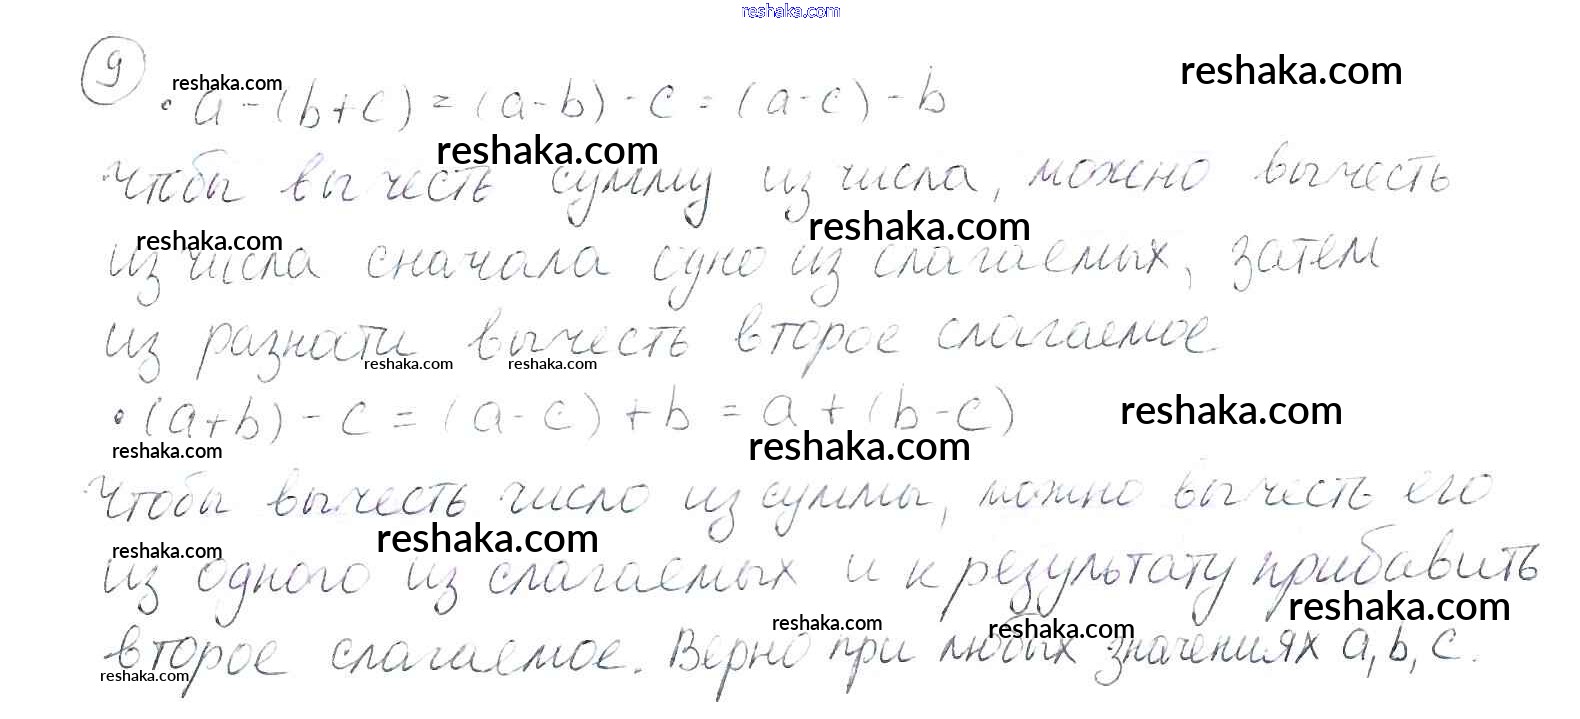 reshaka.com
9
reshaka.com
reshaka.com
• a - (b+c) = (a-b) - c = (a-c) - b
reshaka.com
Чтобы вычесть сумму из числа, можно вычесть
reshaka.com
reshaka.com
из числа сначала одно из слагаемых, затем
из разности вычесть второе слагаемое
reshaka.com reshaka.com
• (a+b) - c = (a-c) + b = a + (b-c)
reshaka.com
reshaka.com
reshaka.com
Чтобы вычесть число из суммы, можно вычесть его
reshaka.com
reshaka.com
из одного из слагаемых и к результату прибавить
reshaka.com
reshaka.com
reshaka.com
второе слагаемое. Верно при любых значениях a, b, c.
reshaka.com